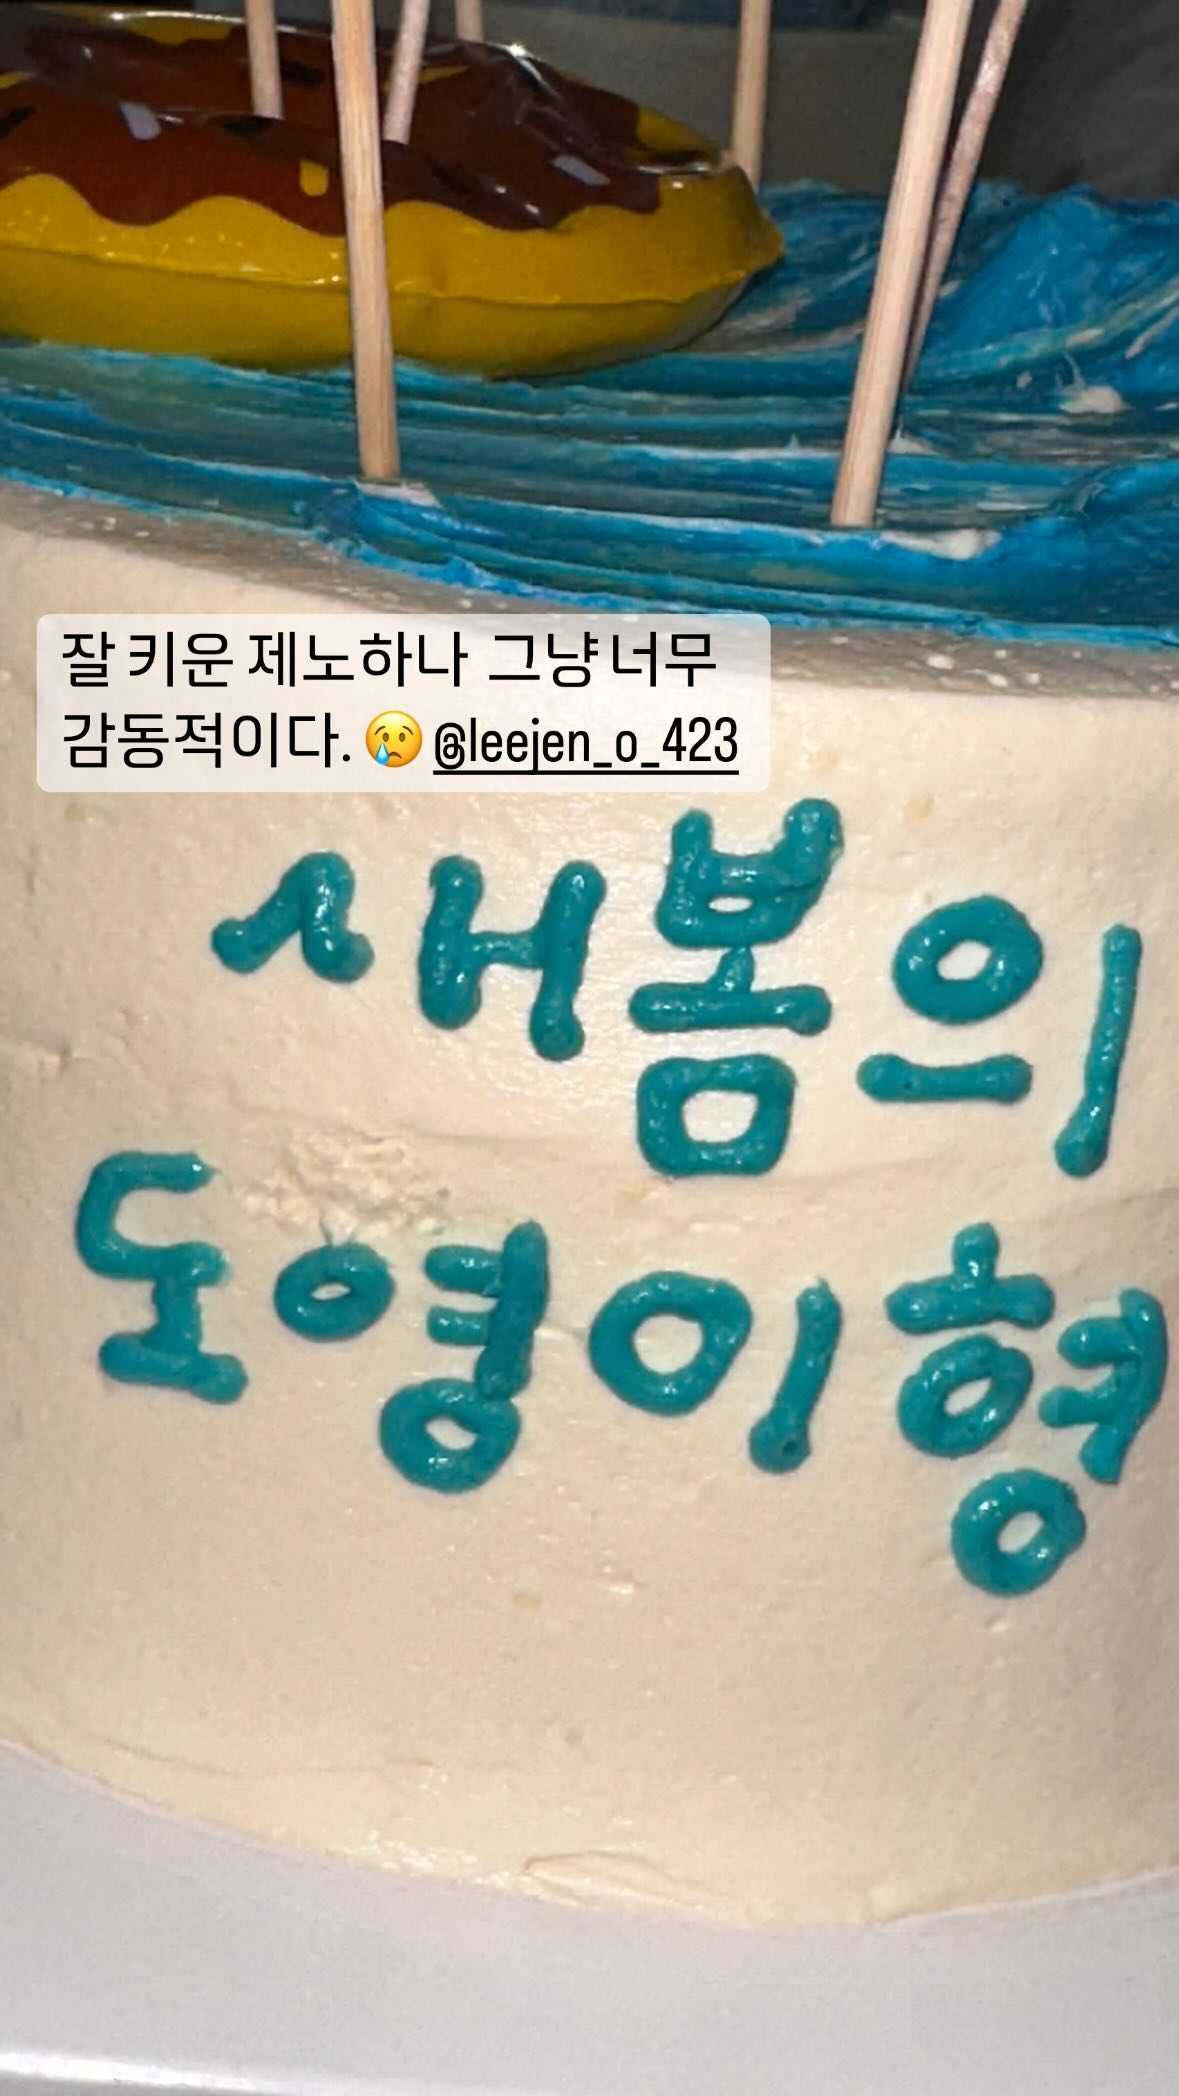 잘 키운 제노하나 그냥 너무
감동적이다. 😢 @leejen_o_423
새봄의
도영이형